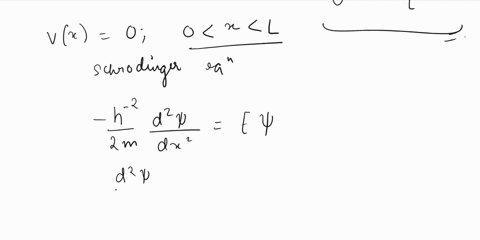 0 L
V(x) = 0; 0 < x < L
schrodinger eqⁿ
-ħ²/2m d²ψ/dx² = E ψ
d²ψ